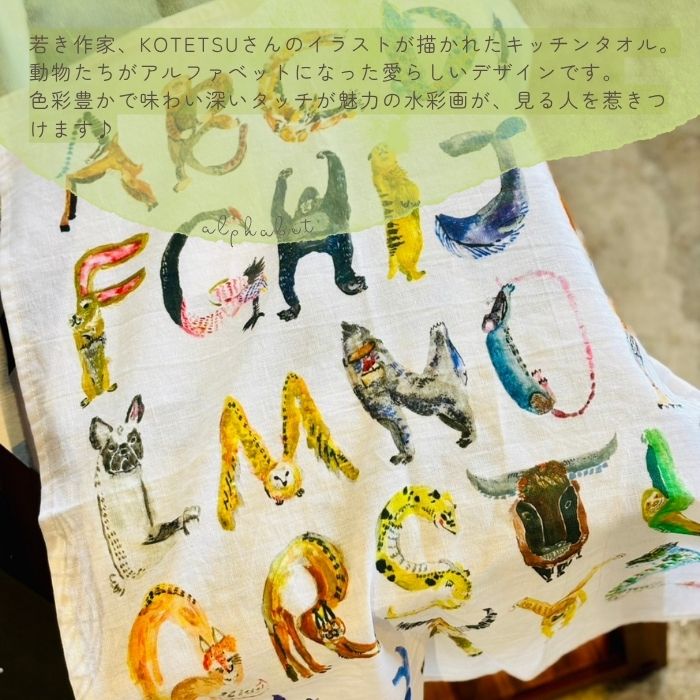 若き作家、KOTETSUさんのイラストが描かれたキッチンタオル。
動物たちがアルファベットになった愛らしいデザインです。
色彩豊かで味わい深いタッチが魅力の水彩画が、見る人を惹きつ
けます♪
A B C D
alphabet
F G H I J
L M N O
Q R S T